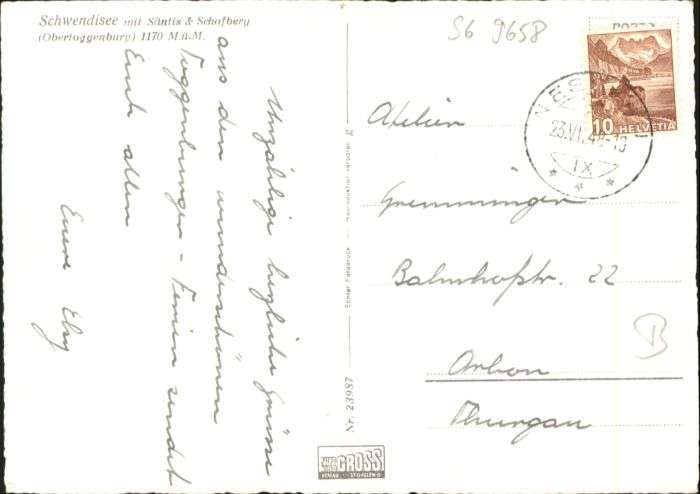 Schwendisee mit Säntis & Schafberg
(Obertoggenburg) 1170 M.ü.M.
Unzählige herzliche Grüsse
aus den wunderschönen
Toggenburger-Ferien sendet
Euch allen
Eure Elsy
Echter Fotodruck — Reproduktion verboten
Nr. 23987
GROSS
S6 9658
10 HELVETIA
NES
23.VI.
IX
Atelier
Gremminger
Bahnhofstr. 22
Arbon
Thurgau
B